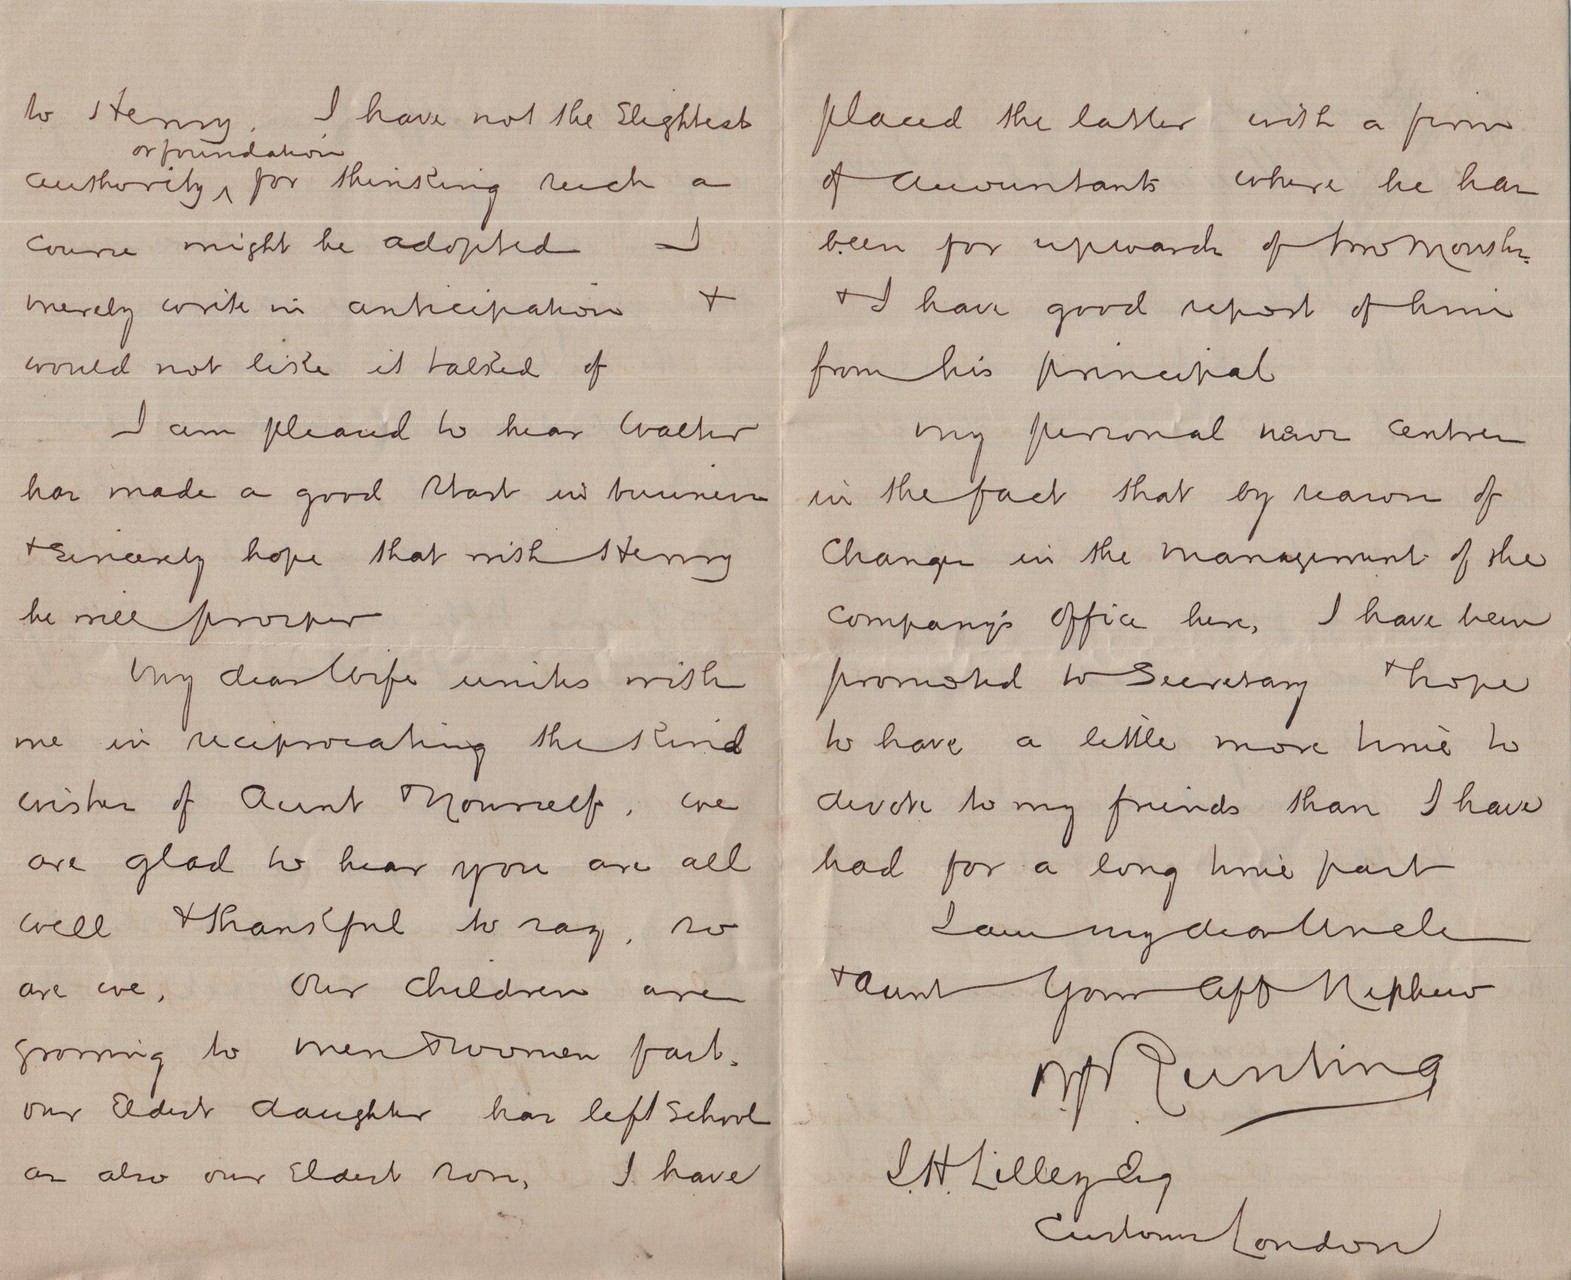 to Henry. I have not the Slightest
or foundation
authority ‸ for thinking such a
course might be adopted I
merely write in anticipation +
would not like it talked of
I am pleased to hear Walter
has made a good Start in business
+ Sincerely hope that with Henry
he will prosper
My dear Wife unites with
me in reciprocating the Kind
wishes of Aunt + Yourself, we
are glad to hear you are all
well + thankful to say, so
are we, Our Children are
growing to men + women fast.
our Eldest daughter has left School
as also our Eldest son, I have
placed the latter with a firm
of accountants where he has
been for upwards of two Months
+ I have good report of him
from his principal
My personal news centres
in the fact that by reason of
Changes in the management of the
Company's Office here, I have been
promoted to Secretary + hope
to have a little more time to
devote to my friends than I have
had for a long time past
I am my dear Uncle
+ Aunt Your Aff Nephew
Runting
J. H. Lilley Esq
Customs London